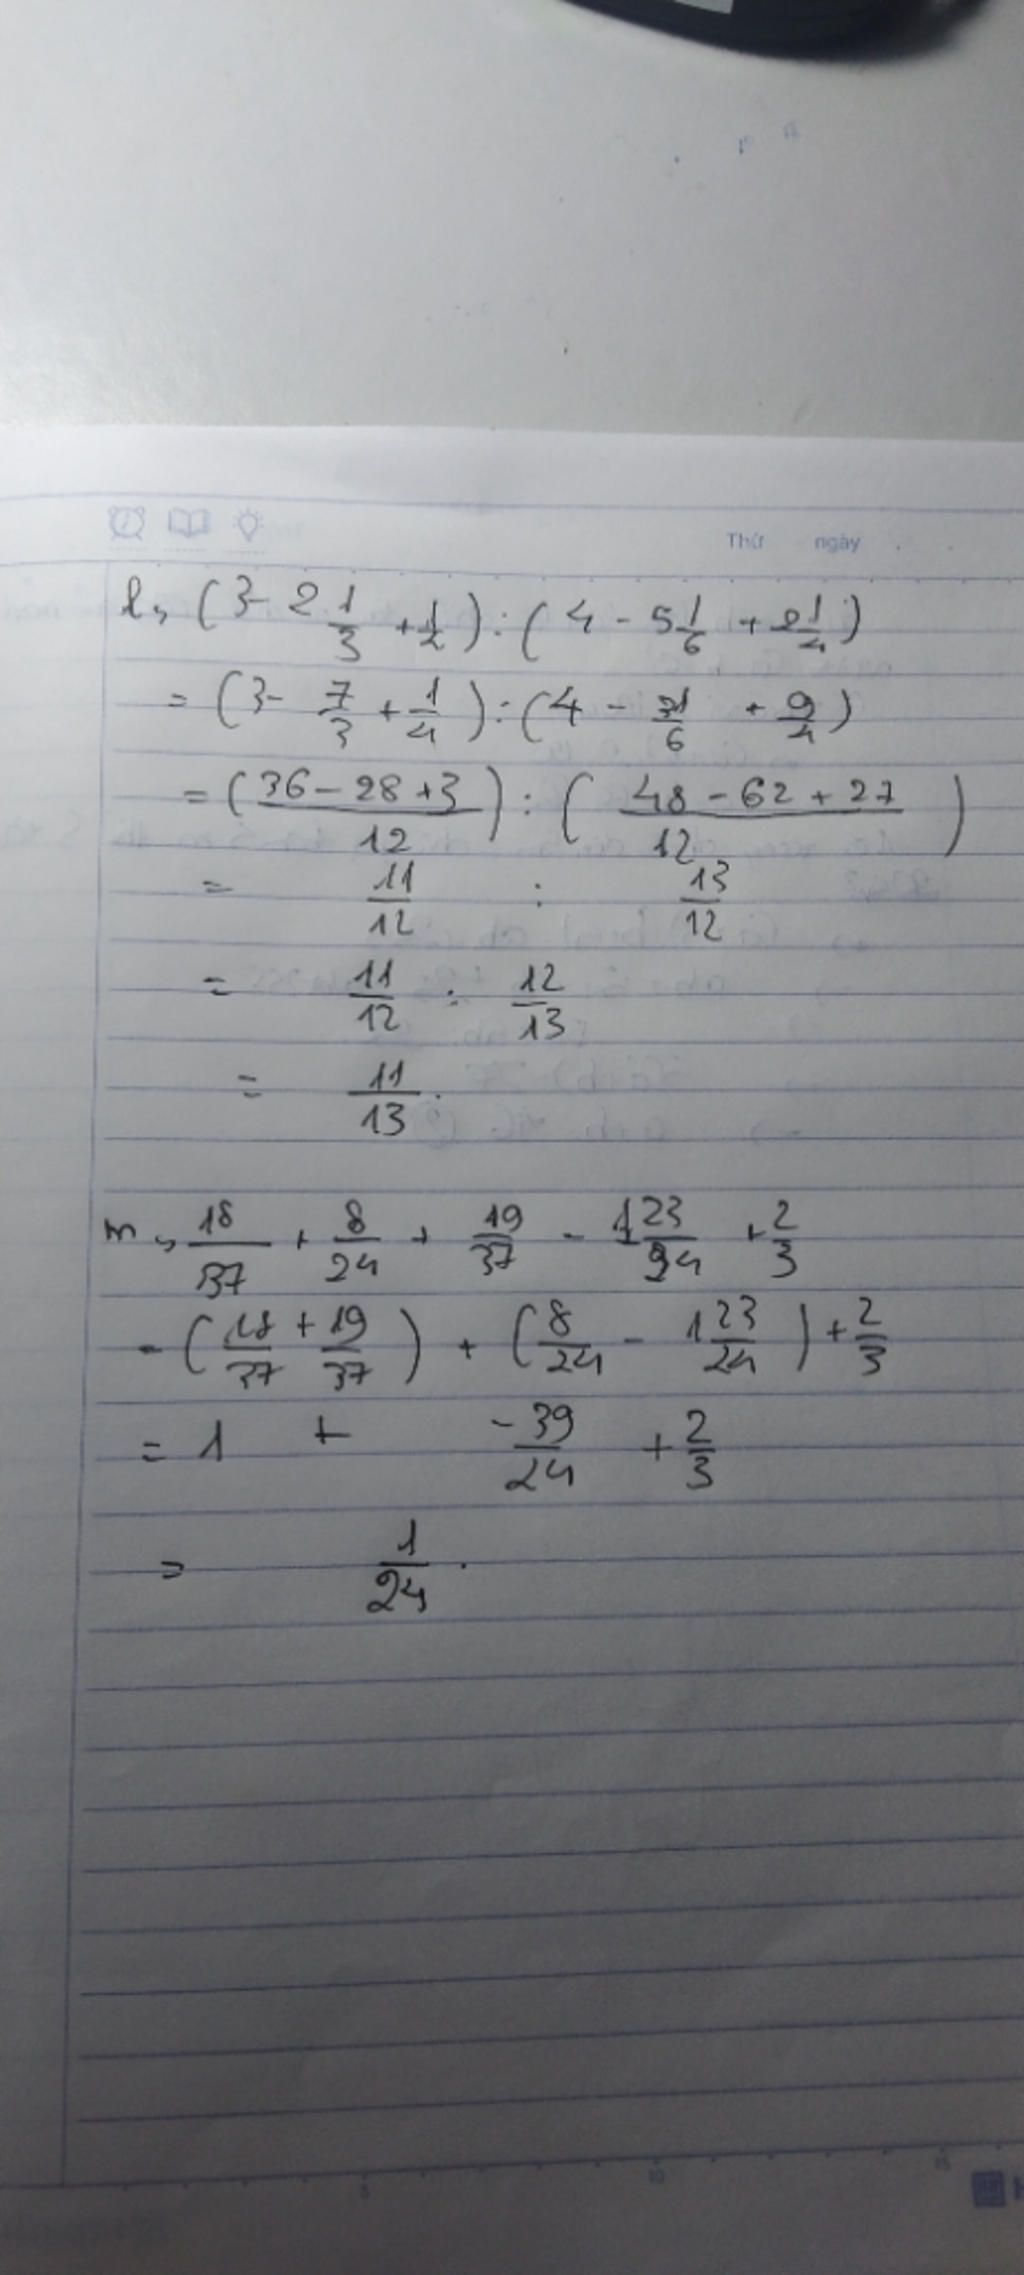 Thứ ngày
l, (3 - 2 1/3 + 1/2) : (4 - 5 1/6 + 2 1/4)
= (3 - 7/3 + 1/4) : (4 - 31/6 + 9/4)
= (36 - 28 + 3 / 12) : (48 - 62 + 27 / 12)
= 11/12 : 13/12
= 11/12 : 12/13
= 11/13.
m, 18/37 + 8/24 + 19/37 - 1 23/24 + 2/3
= (18/37 + 19/37) + (8/24 - 1 23/24) + 2/3
= 1 + -39/24 + 2/3
= 1/24.
5 10 15